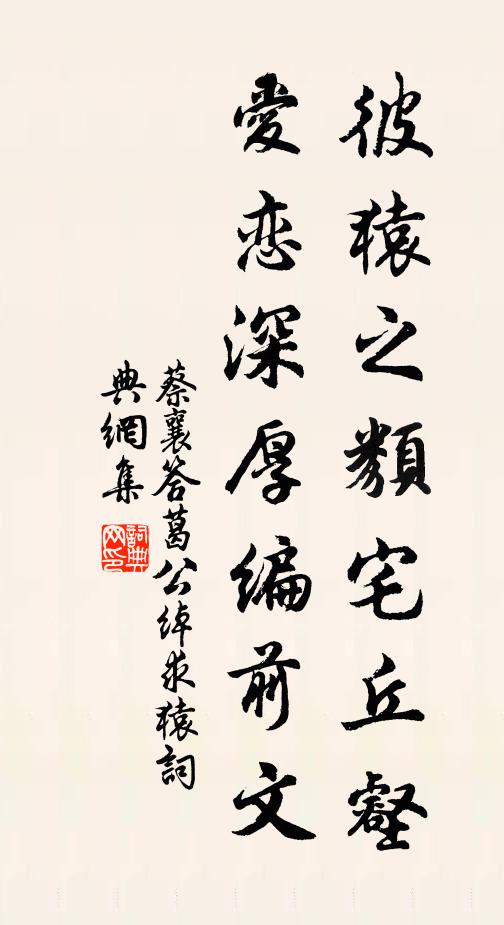 彼猿之類宅丘壑
愛恋深厚編前文
蔡襄答葛公綽求猿詞
典網集
詞典網印